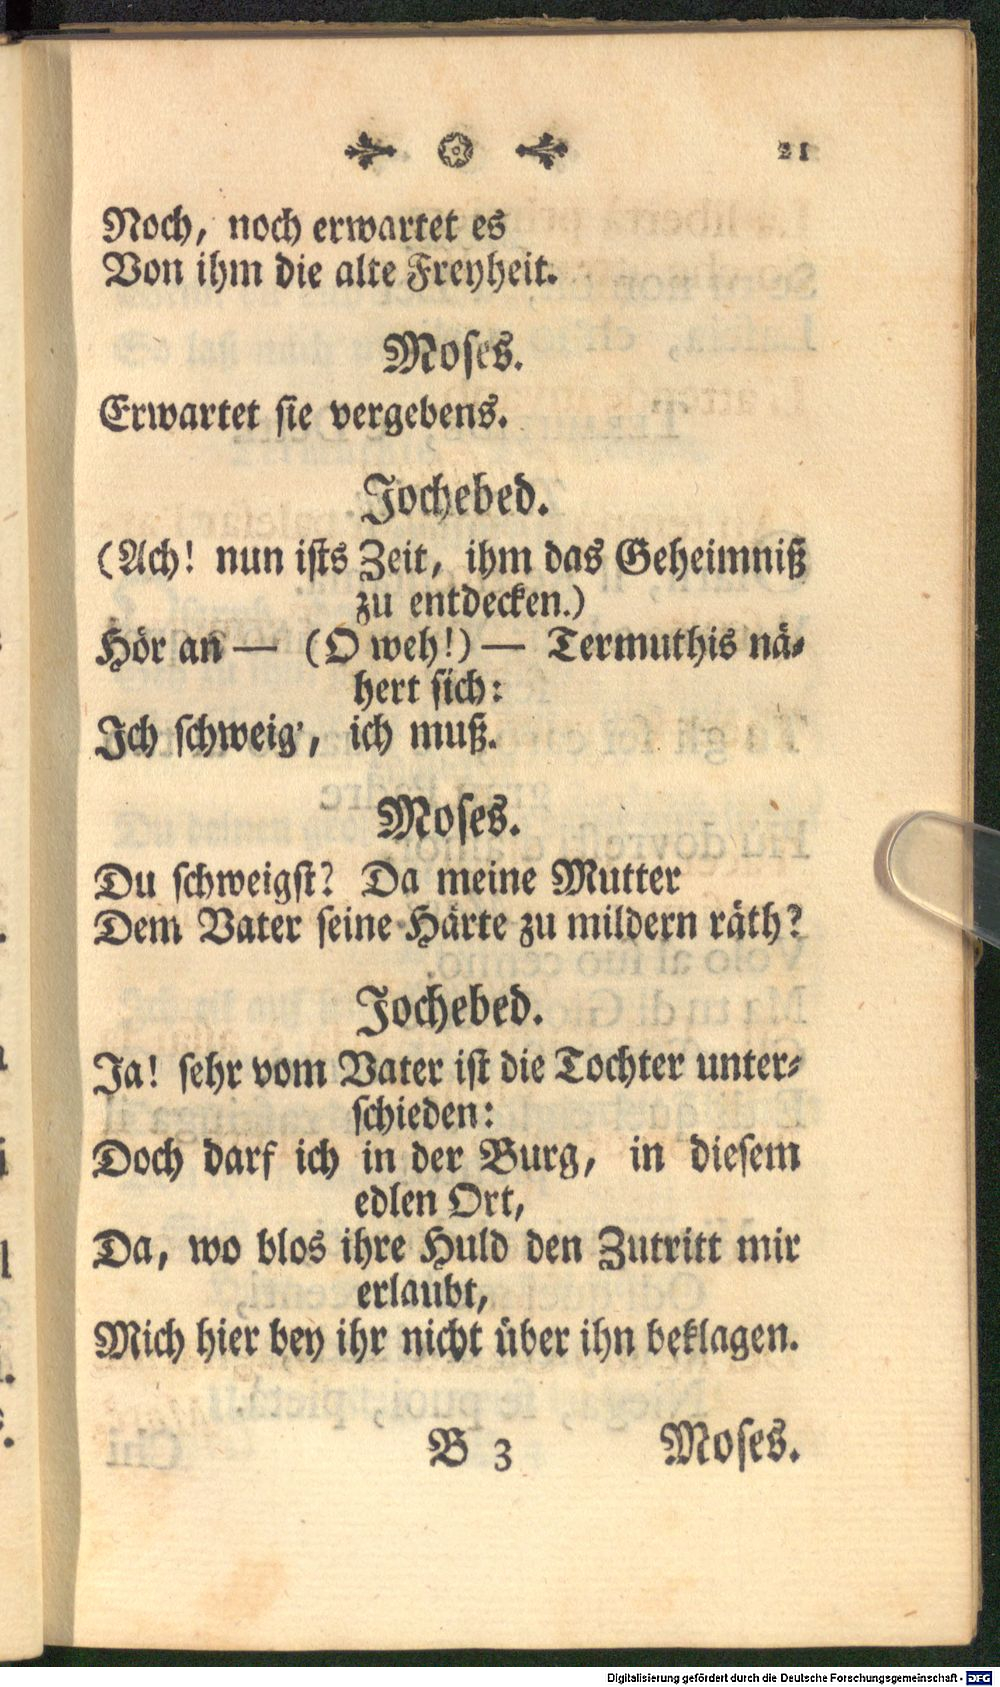 21
Noch, noch erwartet es
Von ihm die alte Freyheit.
Moses.
Erwartet sie vergebens.
Jochebed.
(Ach! nun ists Zeit, ihm das Geheimniß
zu entdecken.)
Hör an — (O weh!) — Termuthis nä-
hert sich:
Ich schweig', ich muß.
Moses.
Du schweigst? Da meine Mutter
Dem Vater seine Härte zu mildern räth?
Jochebed.
Ja! sehr vom Vater ist die Tochter unter-
schieden:
Doch darf ich in der Burg, in diesem
edlen Ort,
Da, wo blos ihre Huld den Zutritt mir
erlaubt,
Mich hier bey ihr nicht über ihn beklagen.
B 3 Moses.
Digitalisierung gefördert durch die Deutsche Forschungsgemeinschaft - DFG